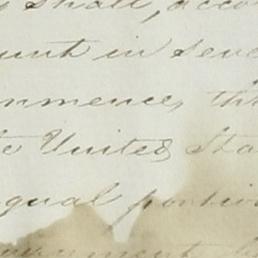 shall, acco
unt in seve
mmence, th
e United Sta
qual portio
ernment